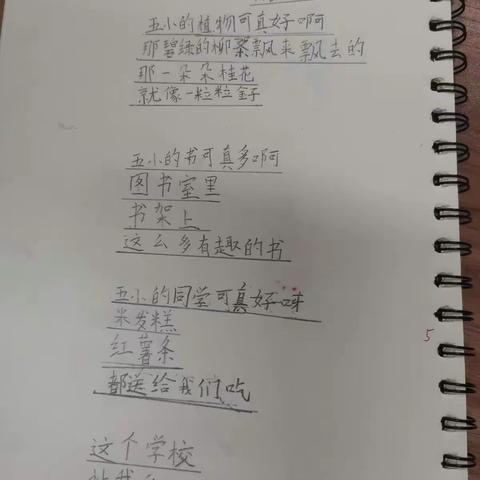 五小的植物可真好啊
那碧绿的柳条飘来飘去的
那一朵朵桂花
就像一粒粒金子
五小的书可真多啊
图书室里
书架上
这么多有趣的书
五小的同学可真好呀
米发糕
红薯条
都送给我们吃
5
这个学校